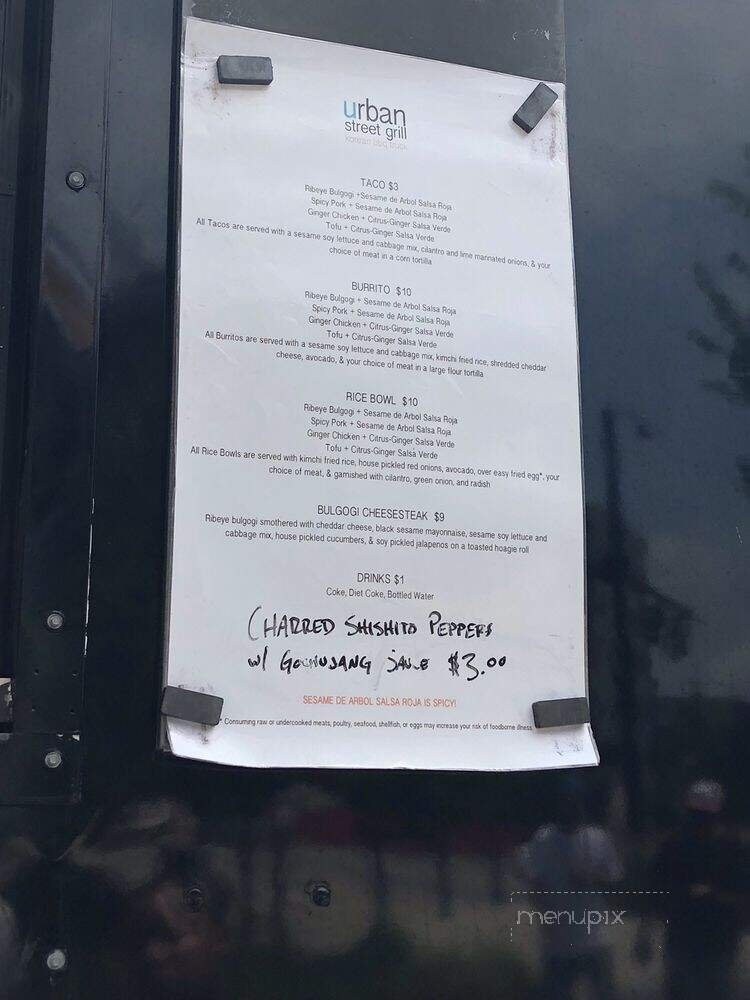 urban
street grill
korean bbq truck
TACO $3
Ribeye Bulgogi +Sesame de Arbol Salsa Roja
Spicy Pork + Sesame de Arbol Salsa Roja
Ginger Chicken + Citrus-Ginger Salsa Verde
Tofu + Citrus-Ginger Salsa Verde
All Tacos are served with a sesame soy lettuce and cabbage mix, cilantro and lime marinated onions, & your
choice of meat in a corn tortilla
BURRITO $10
Ribeye Bulgogi + Sesame de Arbol Salsa Roja
Spicy Pork + Sesame de Arbol Salsa Roja
Ginger Chicken + Citrus-Ginger Salsa Verde
Tofu + Citrus-Ginger Salsa Verde
All Burritos are served with a sesame soy lettuce and cabbage mix, kimchi fried rice, shredded cheddar
cheese, avocado, & your choice of meat in a large flour tortilla
RICE BOWL $10
Ribeye Bulgogi + Sesame de Arbol Salsa Roja
Spicy Pork + Sesame de Arbol Salsa Roja
Ginger Chicken + Citrus-Ginger Salsa Verde
Tofu + Citrus-Ginger Salsa Verde
All Rice Bowls are served with kimchi fried rice, house pickled red onions, avocado, over easy fried egg*, your
choice of meat, & garnished with cilantro, green onion, and radish
BULGOGI CHEESESTEAK $9
Ribeye bulgogi smothered with cheddar cheese, black sesame mayonnaise, sesame soy lettuce and
cabbage mix, house pickled cucumbers, & soy pickled jalapenos on a toasted hoagie roll
DRINKS $1
Coke, Diet Coke, Bottled Water
CHARRED SHISHITO PEPPERS
w/ GOCHUJANG SAUCE $3.00
SESAME DE ARBOL SALSA ROJA IS SPICY!
* Consuming raw or undercooked meats, poultry, seafood, shellfish, or eggs may increase your risk of foodborne illness
menupix